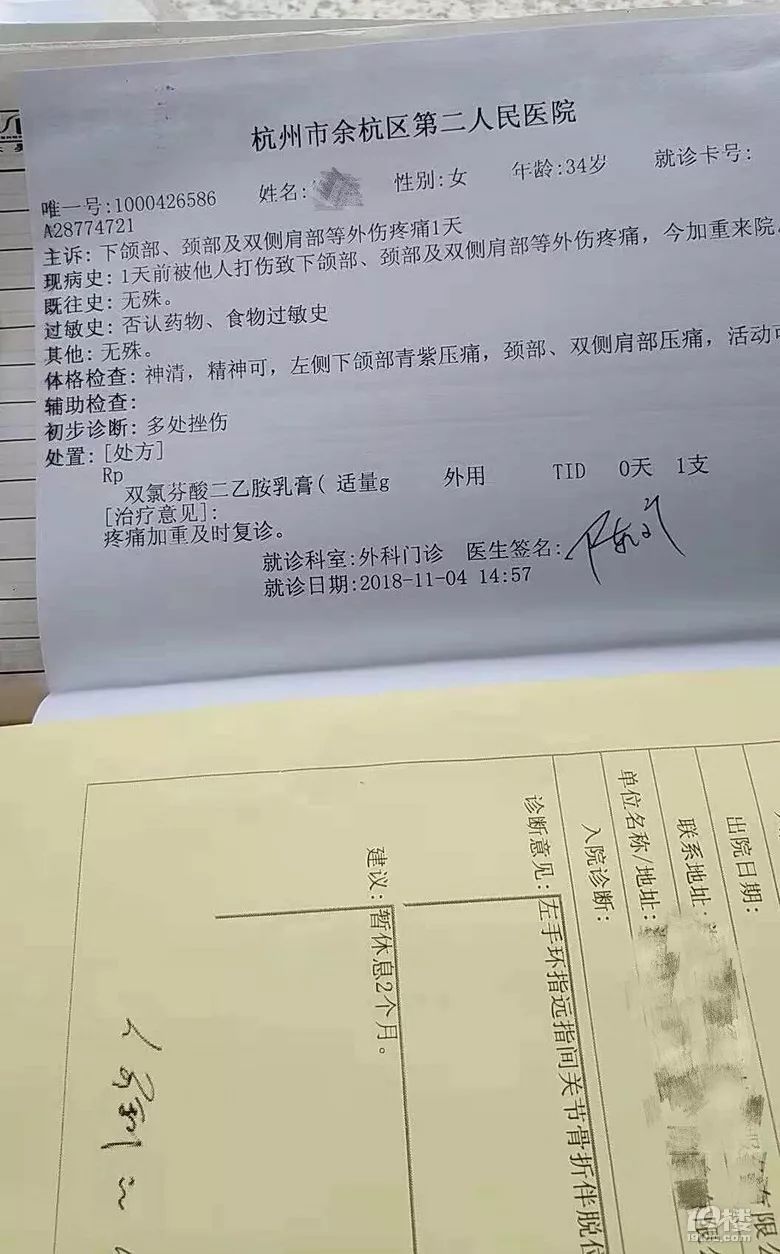 杭州市余杭区第二人民医院
唯一号:1000426586 姓名: 性别:女 年龄:34岁 就诊卡号:
A28774721
主诉: 下颌部、颈部及双侧肩部等外伤疼痛1天
现病史: 1天前被他人打伤致下颌部、颈部及双侧肩部等外伤疼痛，今加重来院。
既往史: 无殊。
过敏史: 否认药物、食物过敏史
其他: 无殊。
体格检查: 神清，精神可，左侧下颌部青紫压痛，颈部、双侧肩部压痛，活动可
辅助检查:
初步诊断: 多处挫伤
处置: [处方]
Rp
双氯芬酸二乙胺乳膏( 适量g 外用 TID 0天 1支
[治疗意见]:
疼痛加重及时复诊。
就诊科室:外科门诊 医生签名:
就诊日期:2018-11-04 14:57
出院日期:
联系地址:
单位名称/地址: 有限公
入院诊断:
诊断意见: 左手环指远指间关节骨折伴脱位
建议: 暂休息2个月。
19楼